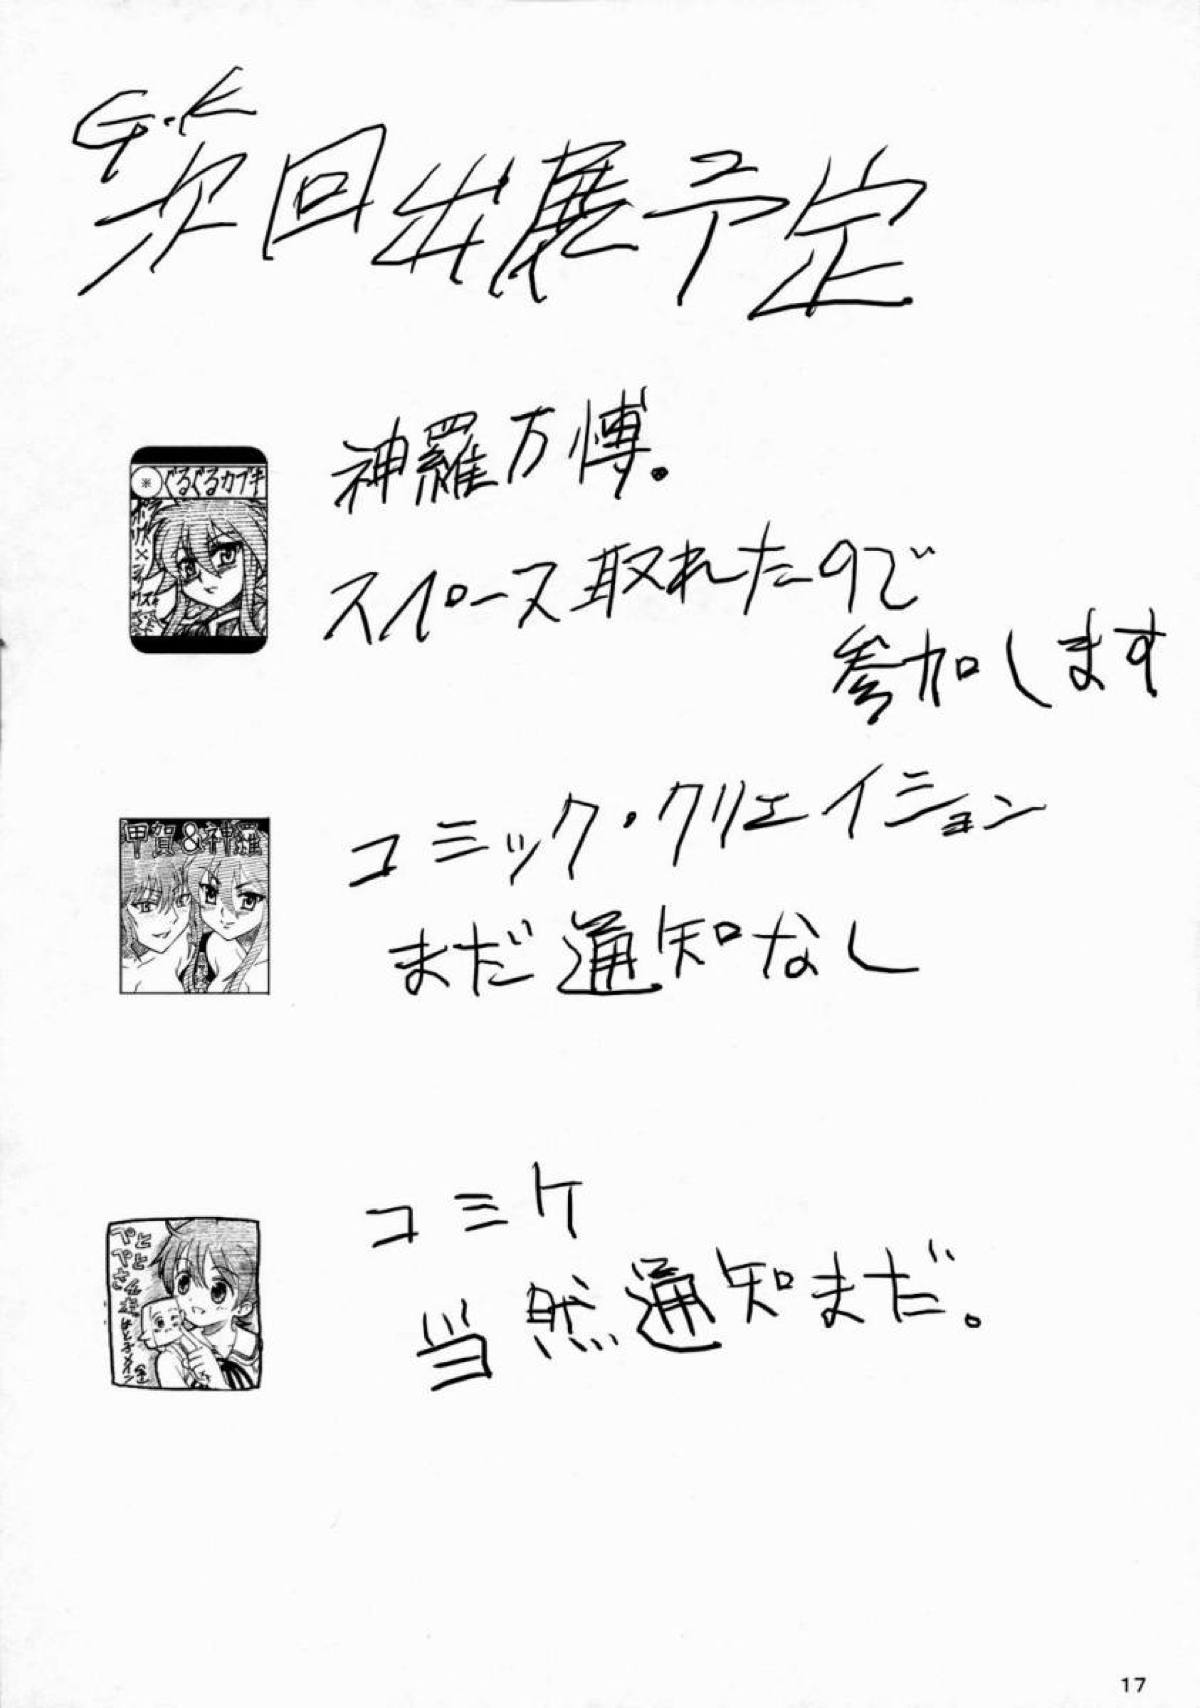 次回出展予定
神羅万博。
スペース取れたので
参加します
※ぐるぐるカブキ
コミック・クリエイション
まだ通知なし
甲賀&神羅
コミケ
当然通知まだ。
17